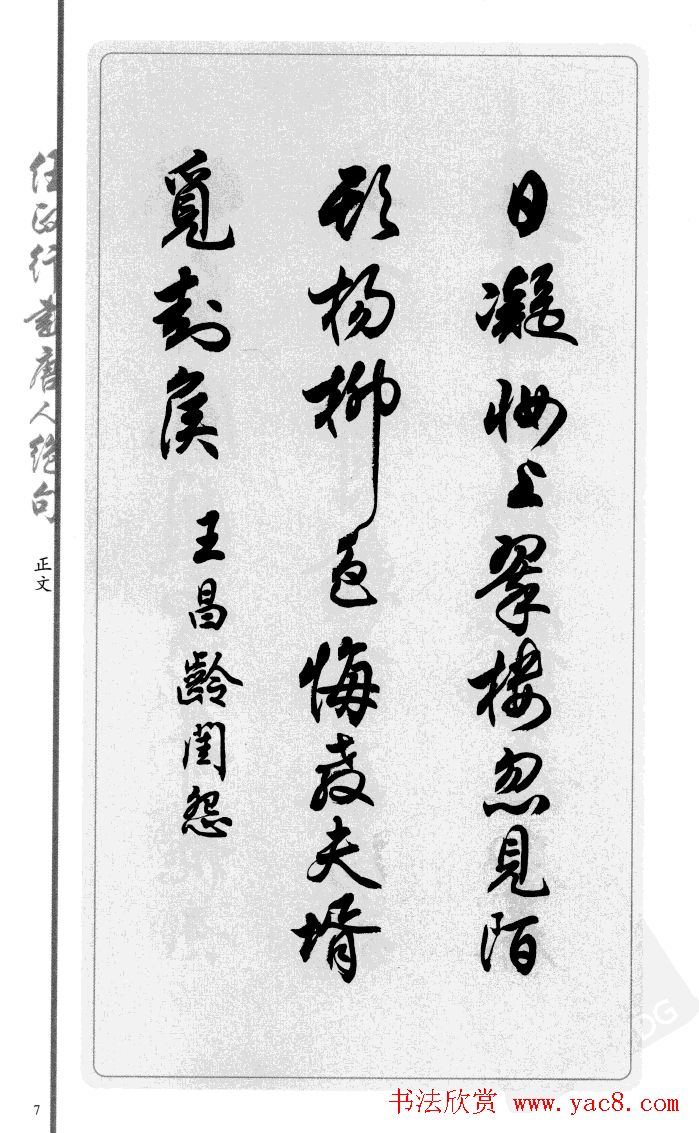 日凝妆上翠楼忽见陌
头杨柳色悔教夫壻
觅封侯 王昌齡闺怨
任政行書唐人绝句
正文
7
书法欣赏 www.yac8.com
DG